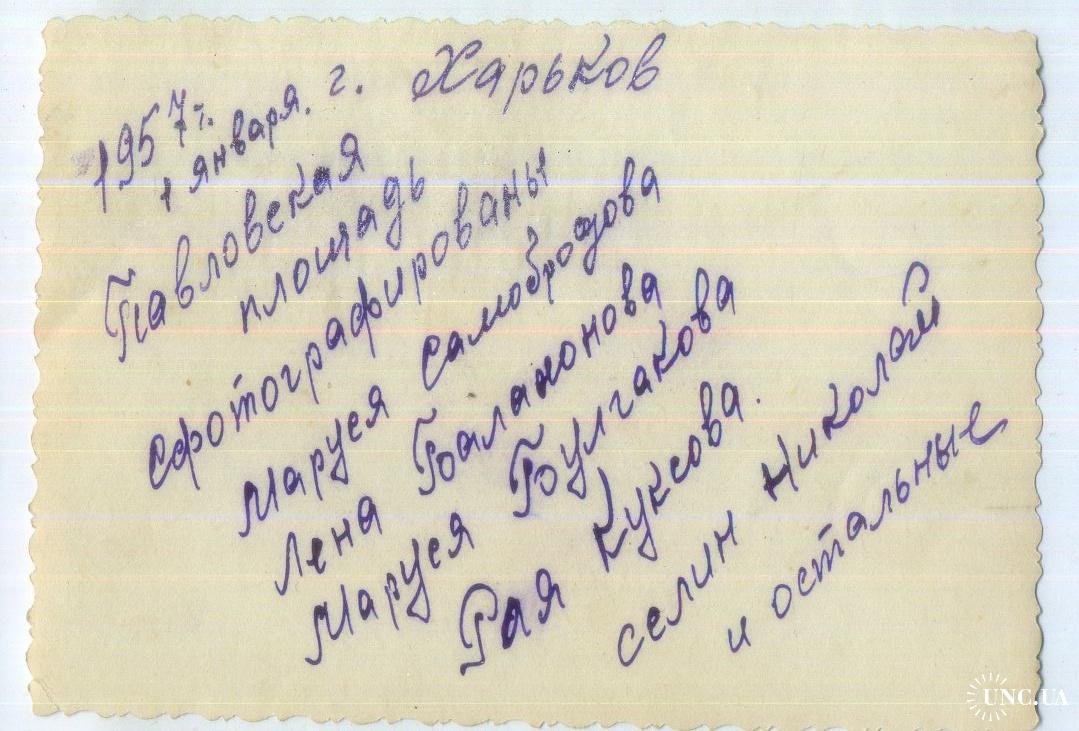 1957 г. г. Харьков
1 января.
Павловская
площадь
сфотографированы
Маруся Самобродова
Лена Балахонова
Маруся Булгакова
Рая Куксова.
Селин Николай
и остальные
UNC.UA